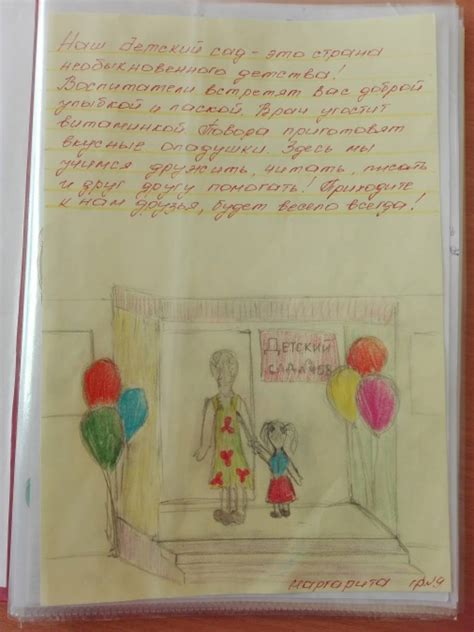 Наш детский сад - это страна
необыкновенного детства!
Воспитатели встретят вас доброй
улыбкой и лаской. Врач угостит
витаминкой. Повора приготовят
вкусные оладушки. Здесь мы
учимся дружить, читать, писать
и друг другу помогать! Приходите
к нам друзья, будет весело всегда!
Детский
сад
Маргарита